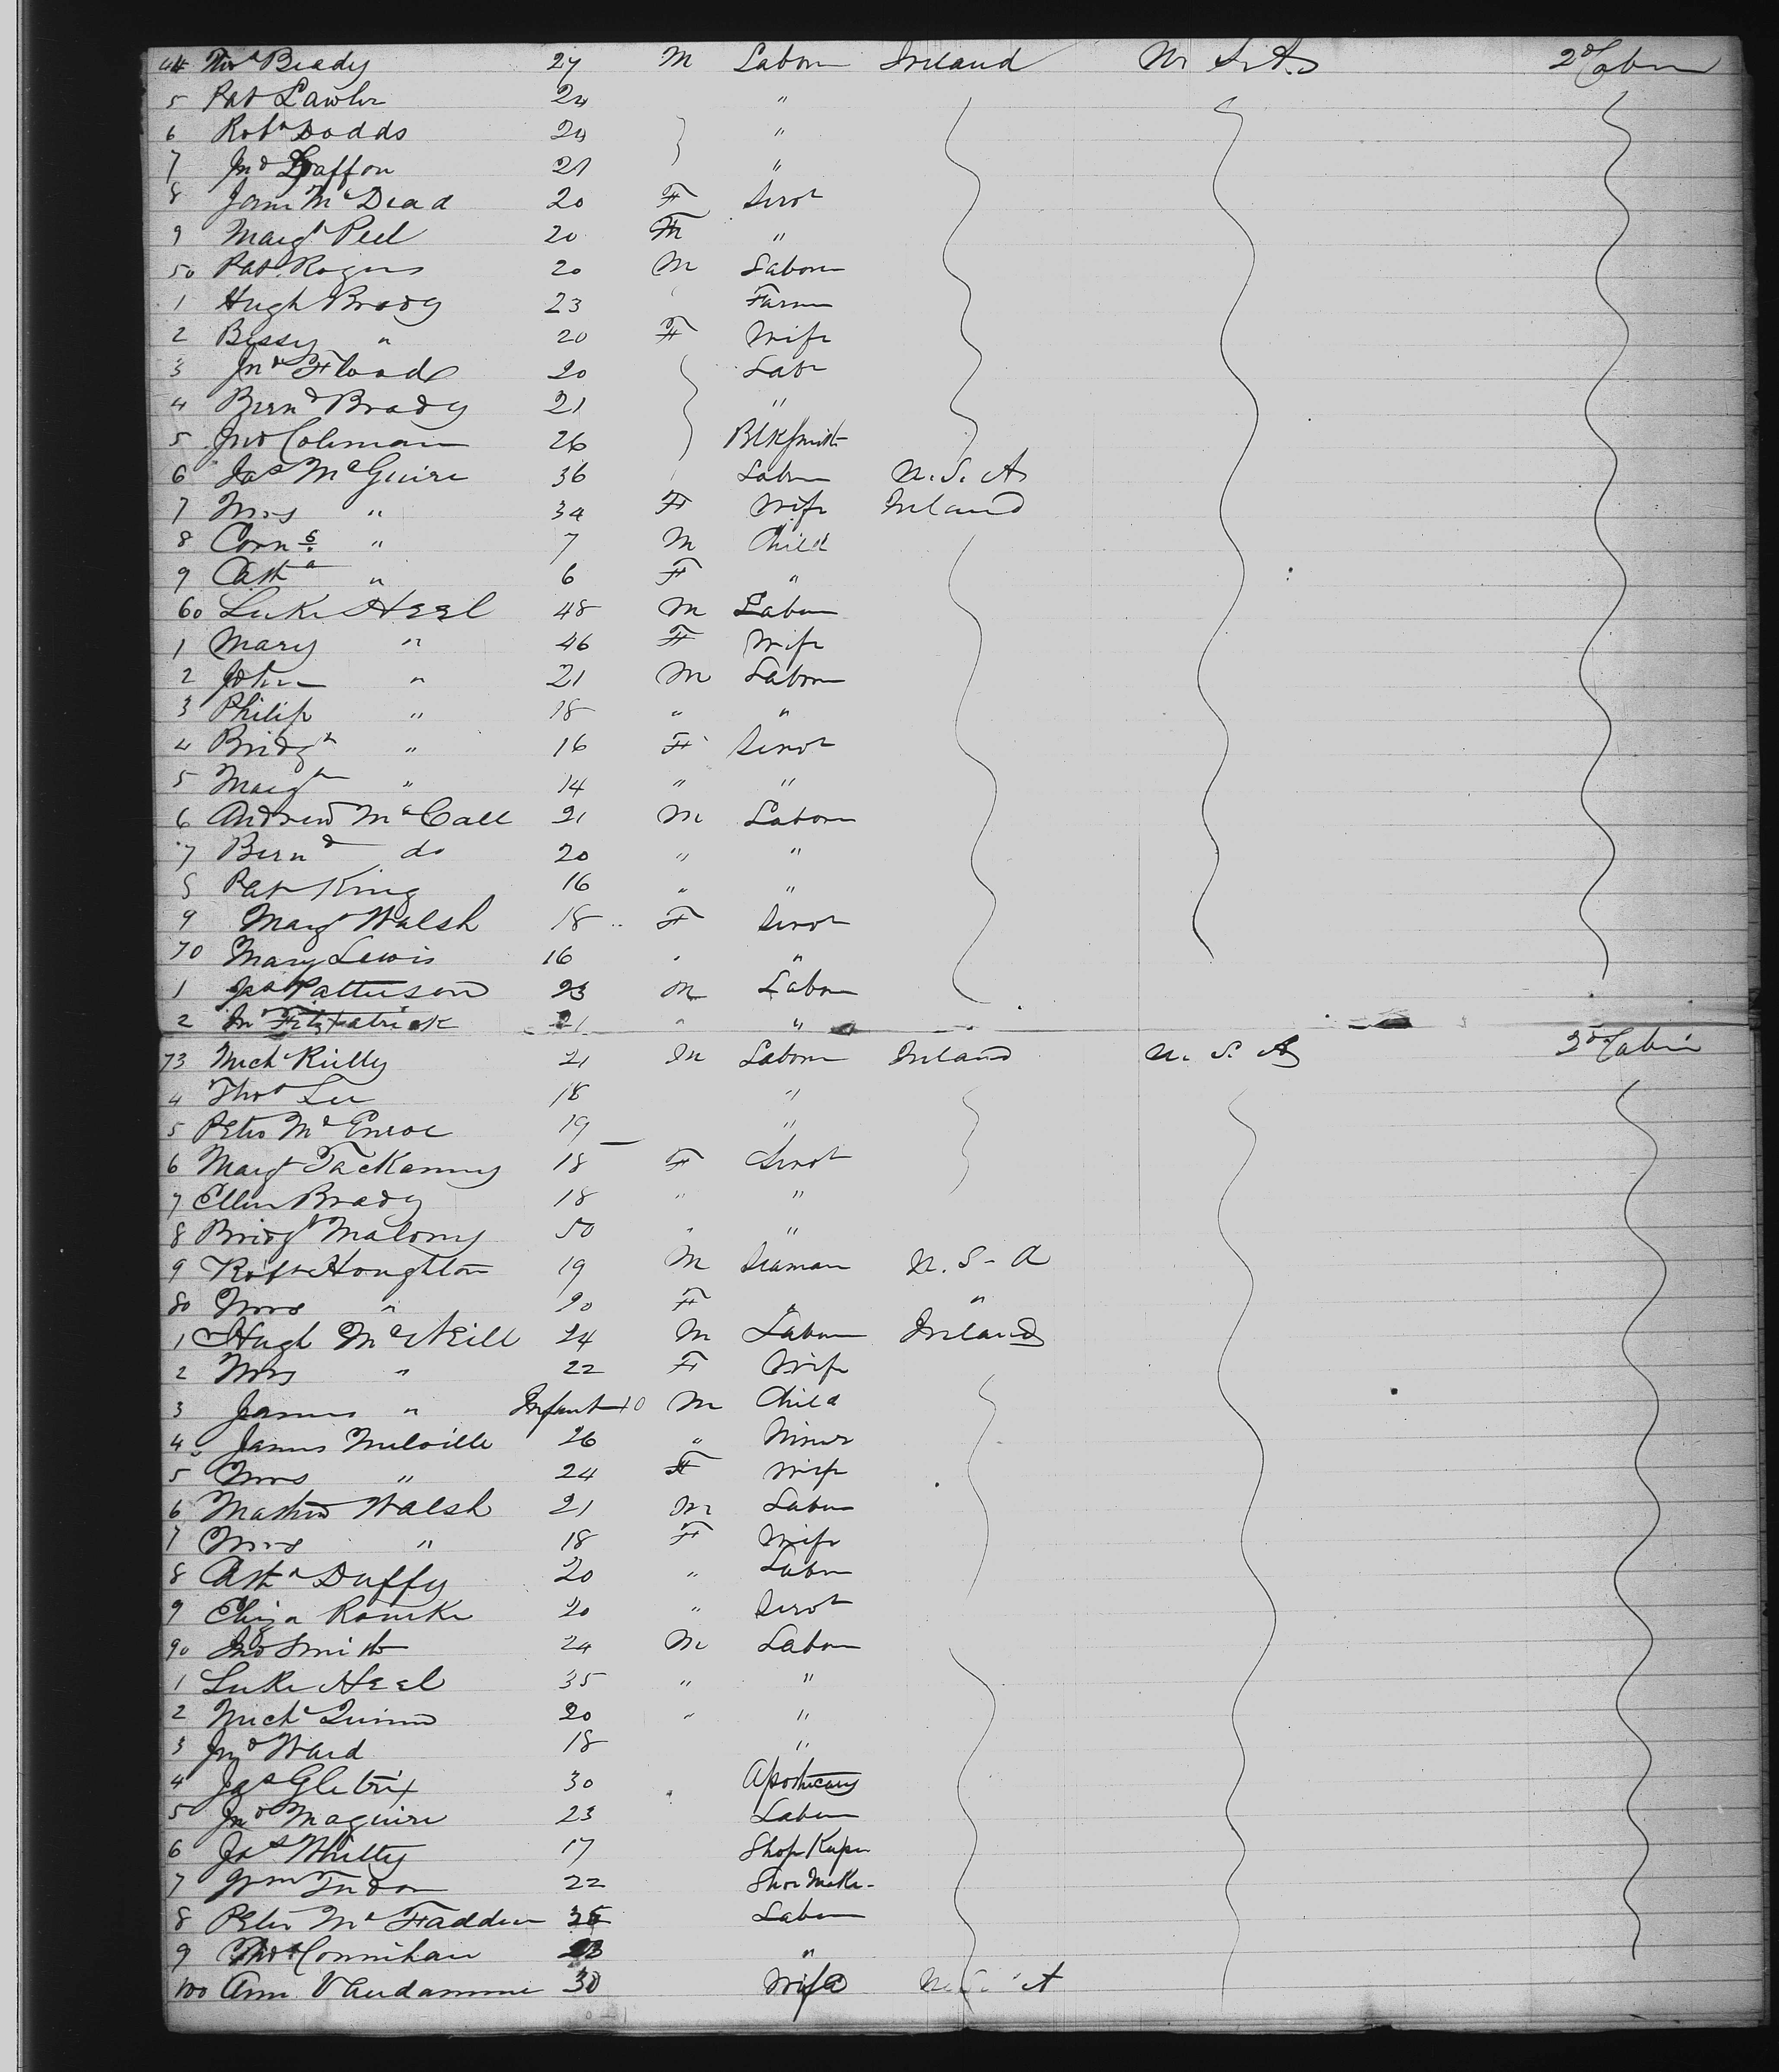 44 Thos Brady 27 M Labour Ireland U.S.A. 2d Cabin
5 Pat Lawler 24 "
6 Robt Dodds 24 "
7 Jno Gaffon 21 "
8 Jane McDead 20 F Servt
9 Margt Peel 20 F "
50 Pat Rogers 20 M Labour
1 Hugh Brady 23 Farmr
2 Bessy " 20 F Wife
3 Jno Flood 20 Labr
4 Bernd Brady 21 "
5 Jno Coleman 26 Blksmith
6 Jas McGuire 36 Labour U.S.A
7 Mrs " 34 F Wife Ireland
8 Corns " 7 M Child
9 Cath " 6 F "
60 Luke Heel 48 M Labour
1 Mary " 46 F Wife
2 John " 21 M Labour
3 Philip " 18 " "
4 Bridgt " 16 F Servt
5 Margt " 14 " "
6 Andrew McCall 21 M Labour
7 Bernd do 20 " "
8 Pat King 16 " "
9 Margt Walsh 18 F Servt
70 Mary Lewis 16 " "
1 Jas Patterson 23 M Labour
2 Jn Fitzpatrick 21 " "
73 Mich Reilly 21 M Labour Ireland U.S.A 2d Cabin
4 Thos Lee 18 "
5 Peter McEnroe 19 "
6 Margt Tackanny 18 F Servt
7 Ellen Brady 18 " "
8 Bridgt Malony 50 " "
9 Robt Houghton 19 M Seaman U.S-A
80 Mrs " 20 F " "
1 Hugh McNeill 24 M Labour Ireland
2 Mrs " 22 F Wife
3 James " Infant 10 M Child
4 James Melville 26 " Miner
5 Mrs " 24 F Wife
6 Mathew Walsh 21 M Labour
7 Mrs " 18 F Wife
8 Cath Duffy 20 " Labour
9 Eliza Rourke 20 " Servt
90 Jno Smith 24 M Labour
1 Luke Heel 35 " "
2 Mich Quinn 20 " "
3 Jno Ward 18 "
4 Jas 30 Apothecary
5 Jno Maguire 23 Labour
6 Jas Whitty 17 Shop Keper
7 Wm Tudor 22 Shoe Maker
8 Peter McFadden 35 Labour
9 Thos Connihan 23 "
100 Ann Vandamme 30 Wife U.S.A